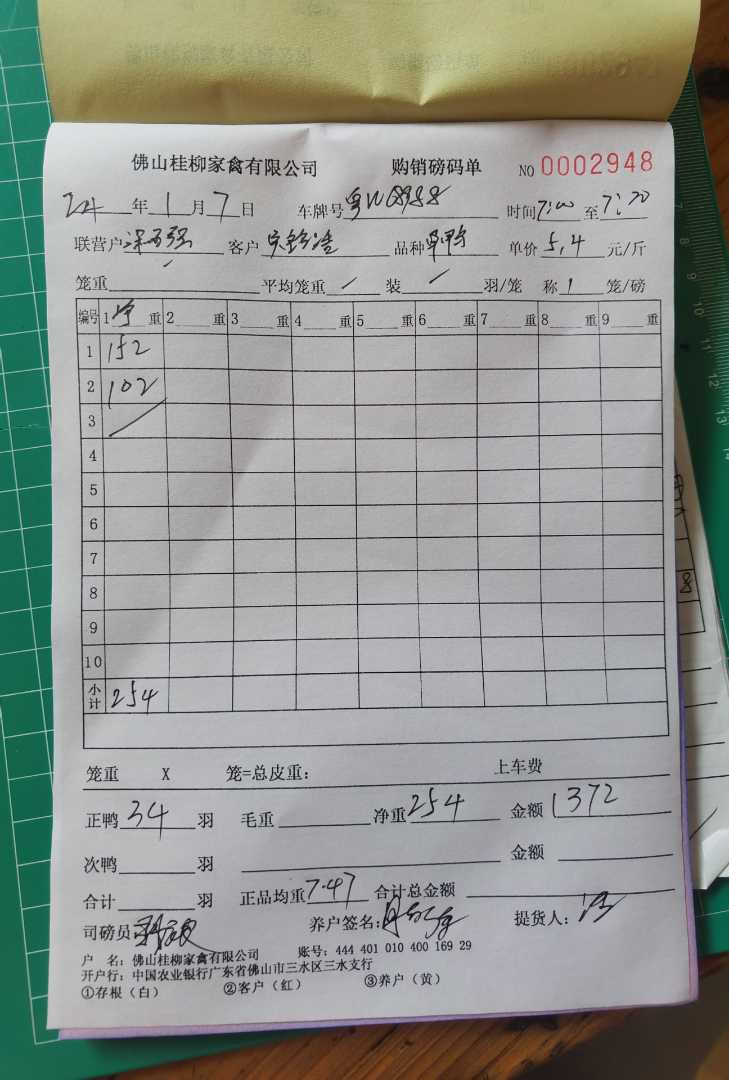 佛山桂柳家禽有限公司 购销磅码单 NO 0002948
24 年 1 月 7 日 车牌号 粤W 8958 时间 7:00 至 7:20
联营户 强 客户 品种 单价 5.4 元/斤
笼重 平均笼重 / 装 / 羽/笼 称 1 笼/磅
编号 1 净 重 2 重 3 重 4 重 5 重 6 重 7 重 8 重 9 重
1 152
2 102
3
4
5
6
7
8
9
10
小计 254
笼重 X 笼=总皮重: 上车费
正鸭 34 羽 毛重 净重 254 金额 1372
次鸭 羽 金额
合计 羽 正品均重 7.47 合计总金额
司磅员: 养户签名: 提货人:
户 名: 佛山桂柳家禽有限公司 账号: 444 401 010 400 169 29
开户行: 中国农业银行广东省佛山市三水区三水支行
①存根（白） ②客户（红） ③养户（黄）